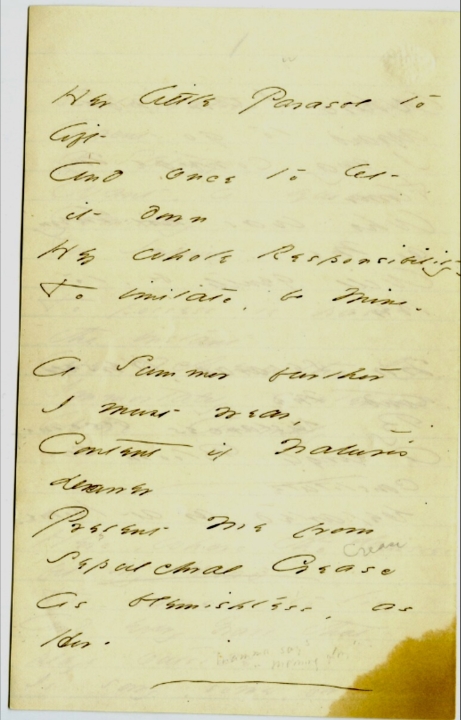 Her little Parasol to
lift
And once to let
it down
Her whole Responsibility
To imitate, be Mine.
A Summer further
I must wear,
Content if Nature's
drawer
Present me from
Sepulchral Crease
As blemishless, as
Her.